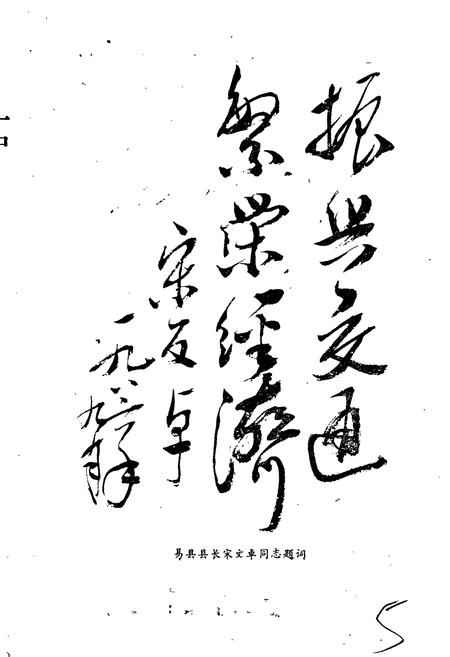 振兴交通
繁荣经济
宋文卓
一九八六年
九月
易县县长宋文卓同志题词
5